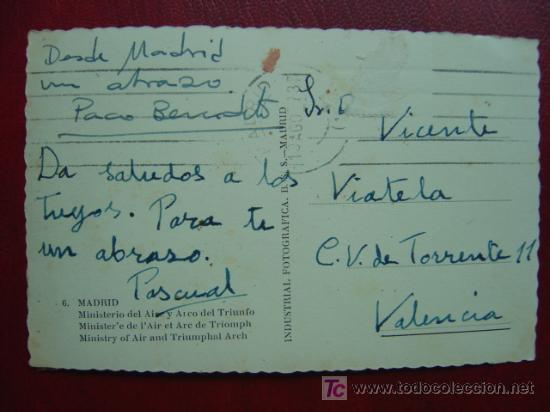 Desde Madrid
un abrazo.
Paco
Da saludos a los
tuyos. Para ti
un abraso.
Pascual
6. MADRID
Ministerio del Aire y Arco del Triunfo
Minister'e de l'Air et Arc de Triomph
Ministry of Air and Triumphal Arch
INDUSTRIAL FOTOGRAFICA, S.—MADRID
Vicente
Viatela
C. V. de Torrente 11
Valencia
TC www.todocoleccion.net